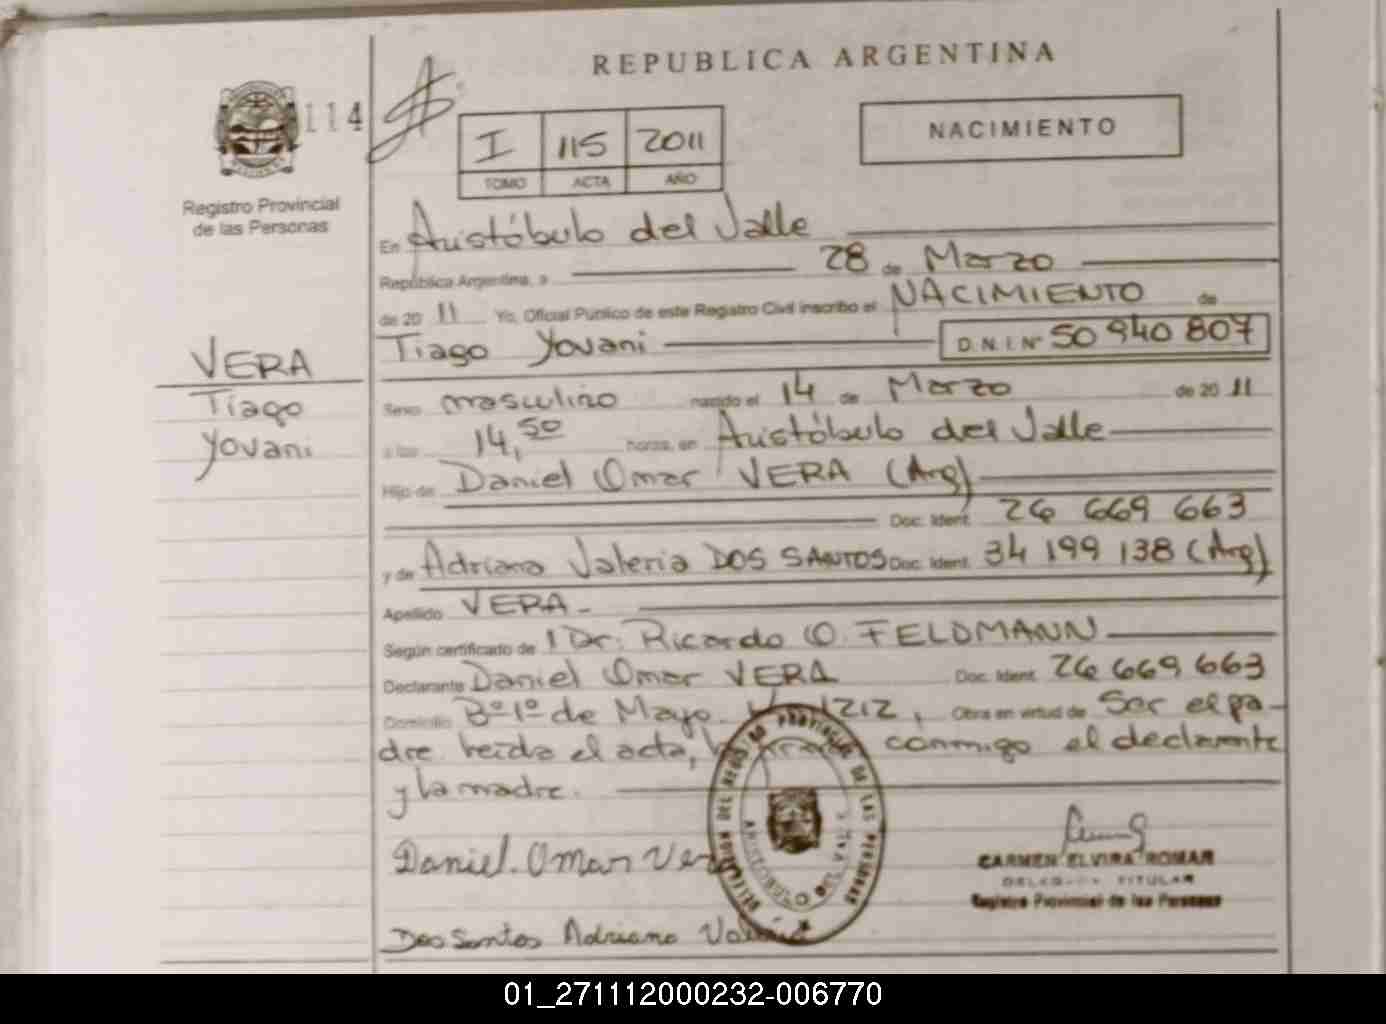 REPUBLICA ARGENTINA
114
I 115 2011
TOMO ACTA AÑO
NACIMIENTO
Registro Provincial
de las Personas
En Aristóbulo del Valle
República Argentina, a 28 de Marzo
de 2011 Yo, Oficial Público de este Registro Civil inscribo el NACIMIENTO de
Tiago Yovani D.N.I. Nº 50 940 807
VERA
Tiago
Yovani
Sexo masculino nacido el 14 de Marzo de 2011
a las 14,50 horas, en Aristóbulo del Valle
Hijo de Daniel Omar VERA (Arg)
Doc. Ident. 26 669 663
y de Adriana Valeria DOS SANTOS Doc. Ident. 34 199 138 (Arg)
Apellido VERA-
Según certificado de Dr. Ricardo O. FELDMANN
Declarante Daniel Omar VERA Doc. Ident. 26 669 663
Domicilio Bº 1º de Mayo 1212, Obra en virtud de Ser el pa-
dre leida el acta, conmigo el declarante
y la madre.
Daniel. Omar Vera
CARMEN ELVIRA ROMAR
DELEGADA TITULAR
Registro Provincial de las Personas
DELEGACION DEL REGISTRO PROVINCIAL DE LAS PERSONAS
ARISTOBULO DEL VALLE
Dos Santos Adriana Valeria
01_271112000232-006770